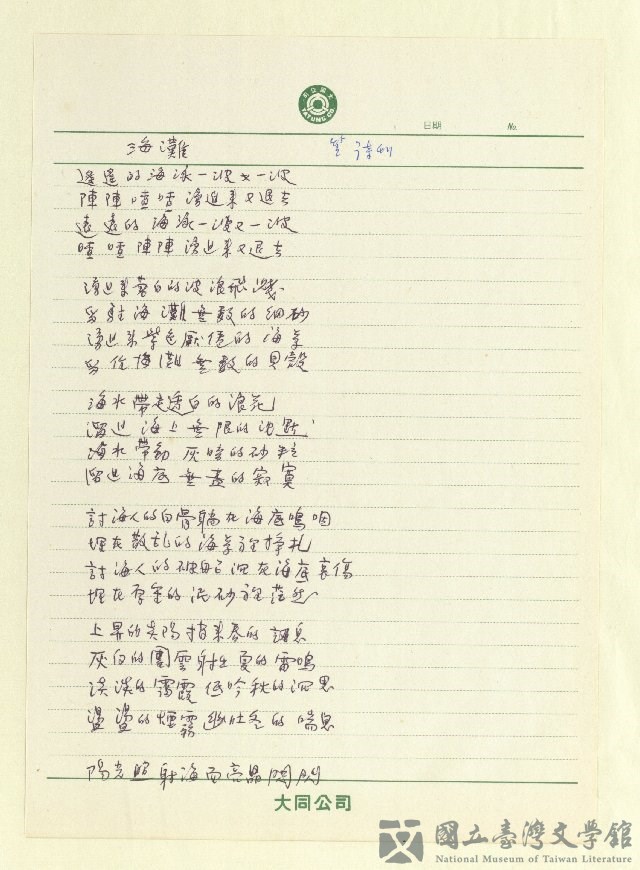 大同公司
TATUNG CO.
日期
No.
海灘
遙遠的海泳一波又一波
陣陣喳喳湧進來又退去
遠遠的海泳一波又一波
喳喳陣陣湧進來又退去
湧進來蒼白的波浪飛濺
射海灘無數的細砂
湧進來紫色 的海草
海灘無數的貝殼
海水帶走透白的浪花
溜進海上無限的沈默
海水帶動灰暗的砂粒
溜進海底無盡的寂寞
討海人的白骨躺在海底鳴咽
埋在散乱的海草裡掙扎
討海人的破船沉在海底哀傷
埋在 的泥砂裡茫然
上昇的炎陽捎來春的訊息
灰白的團雲射出夏的雷鳴
淡淡的靄霞低吟秋的沉思
盪盪的煙霧 吐冬的喘息
陽光照射海面亮晶閃閃
大同公司
國立臺灣文學館
National Museum of Taiwan Literature